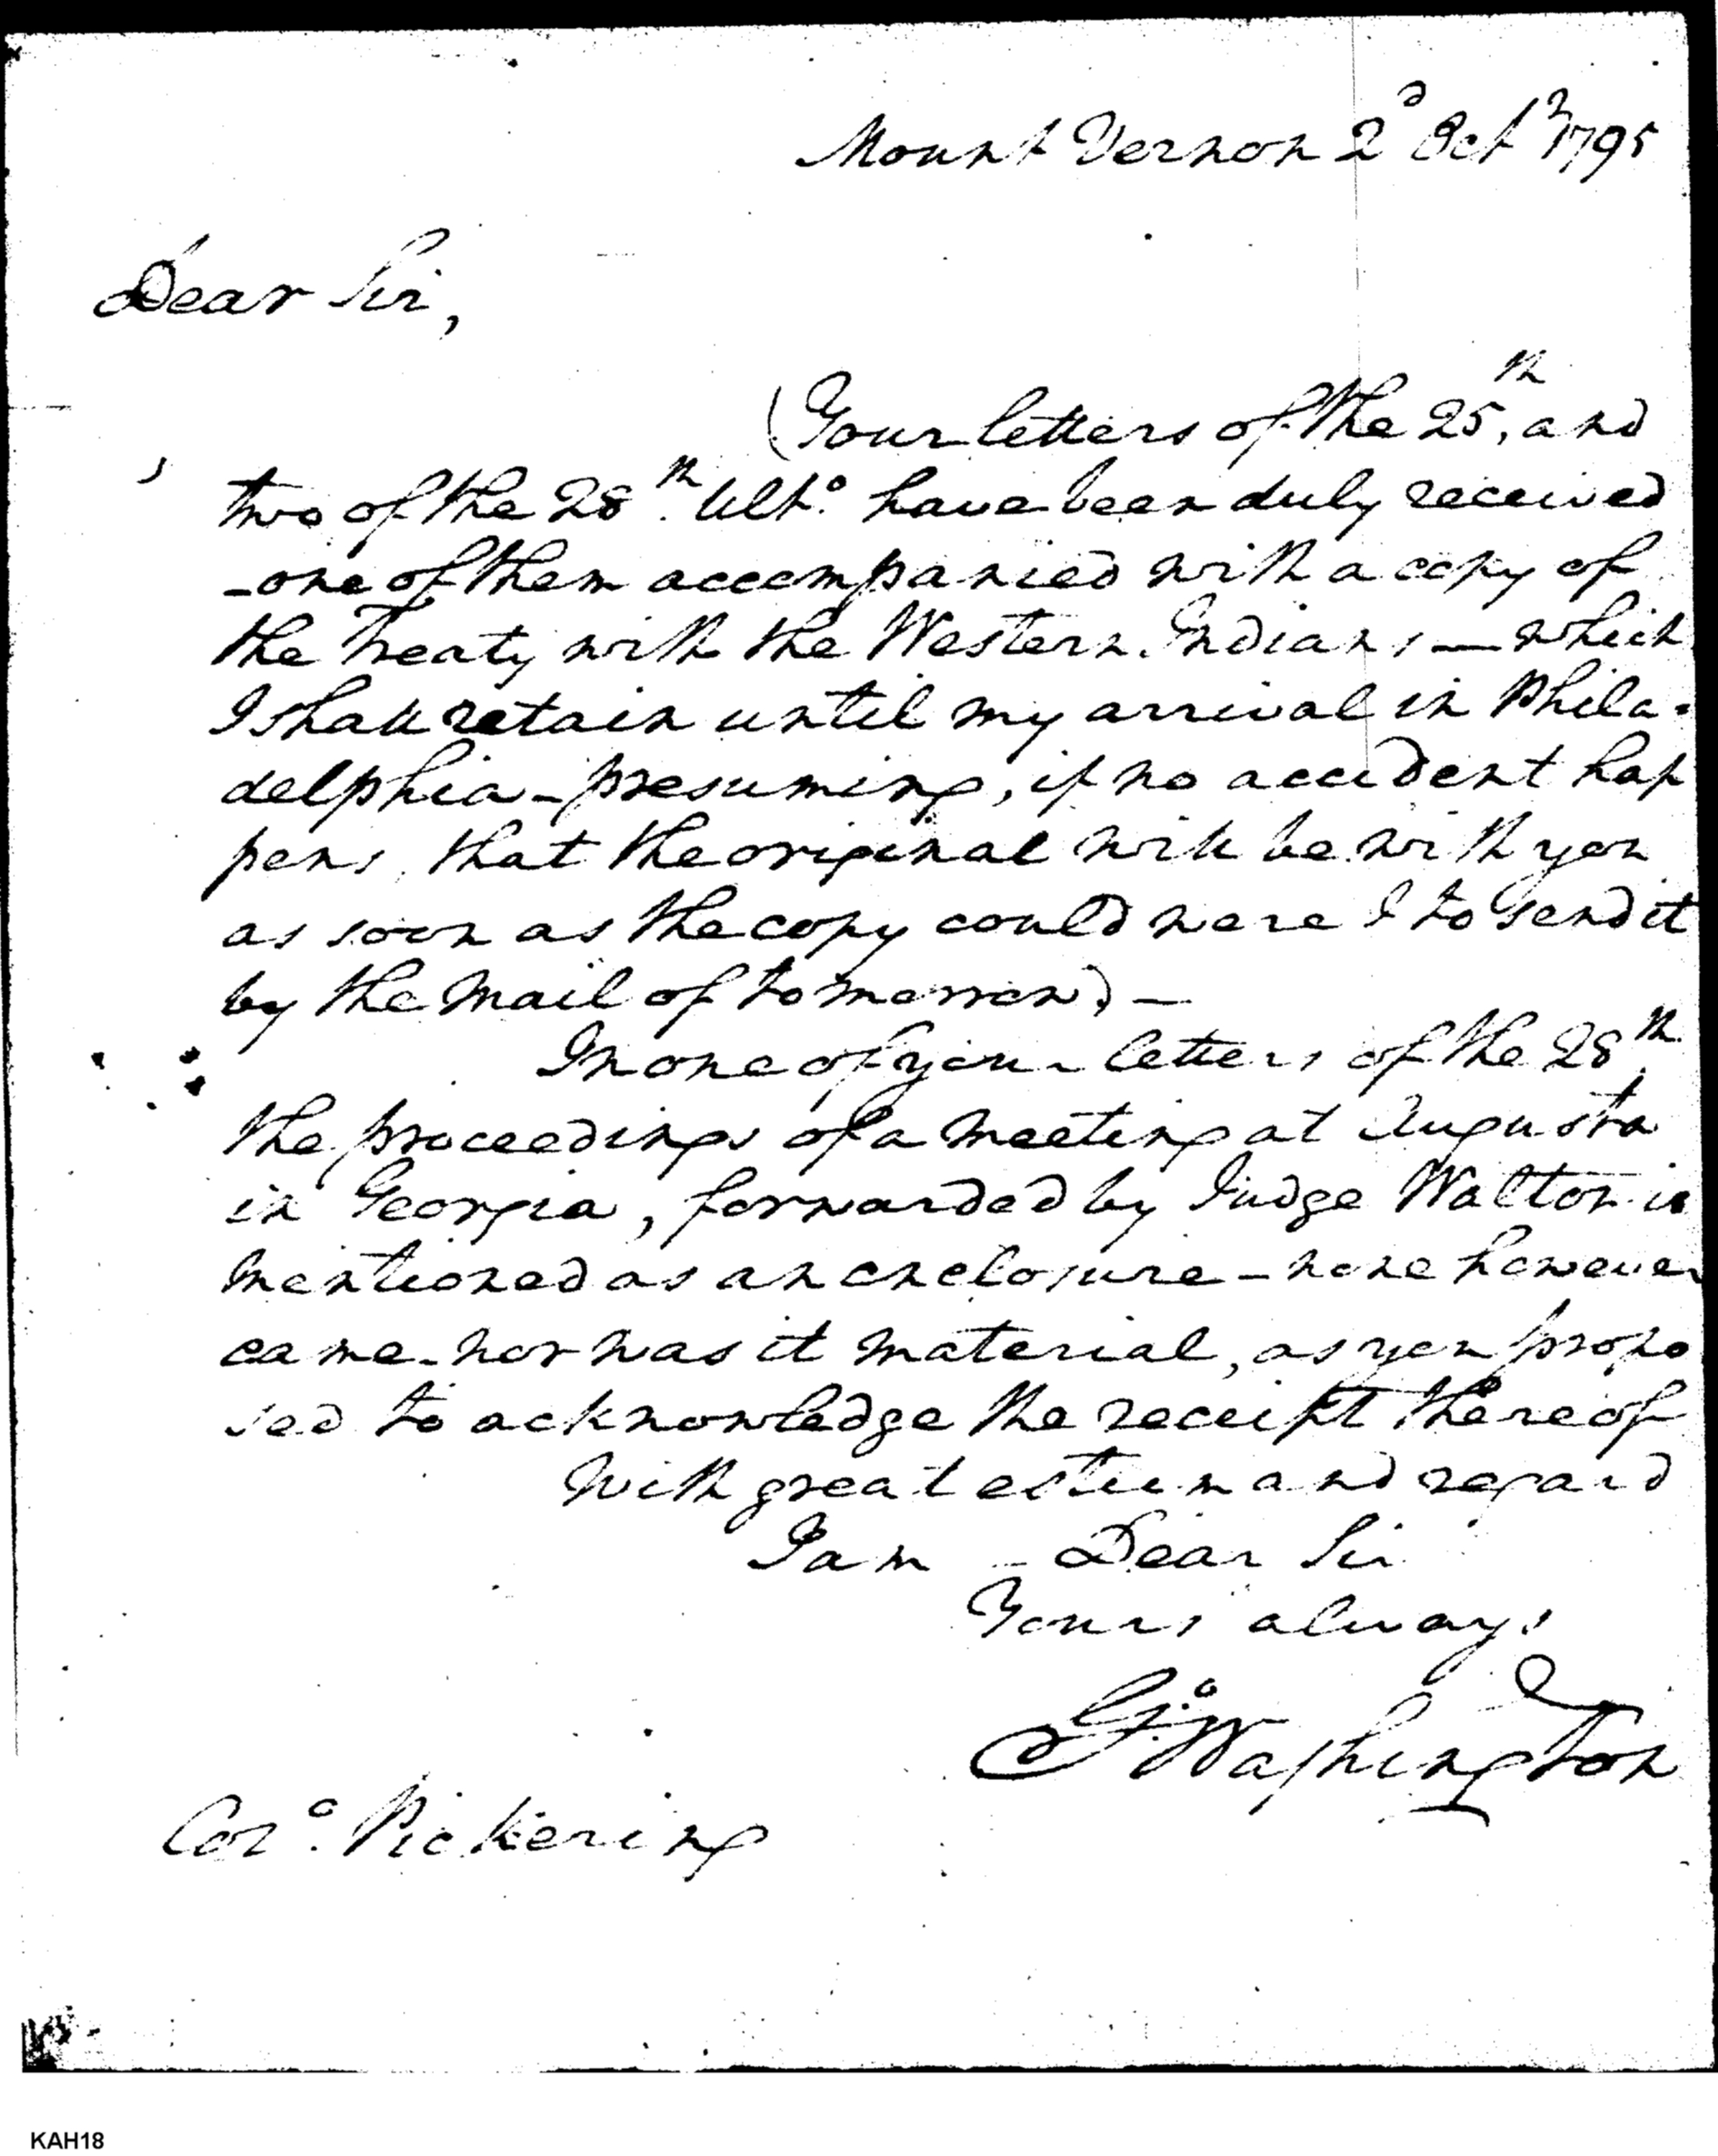 Mount Vernon 2d Octr 1795
Dear Sir,
Your letters of the 25th, and
two of the 28th. Ulto. have been duly received
-one of them accompanied with a copy of
the Treaty with the Western Indians — which
I shall retain until my arrival in Phila-
delphia - presuming, if no accident hap
pens, that the original will be with you
as soon as the copy could were I to send it
by the Mail of tomorrow. —
In one of your letters of the 28th.
the proceedings of a meeting at Augusta
in Georgia, forwarded by Judge Walton is
mentioned as an enclosure - none however
came - nor was it material, as you propo
sed to acknowledge the receipt thereof
With great esteem and regard
I am - Dear Sir
Yours always
Go: Washington
Colo. Pickering
KAH18